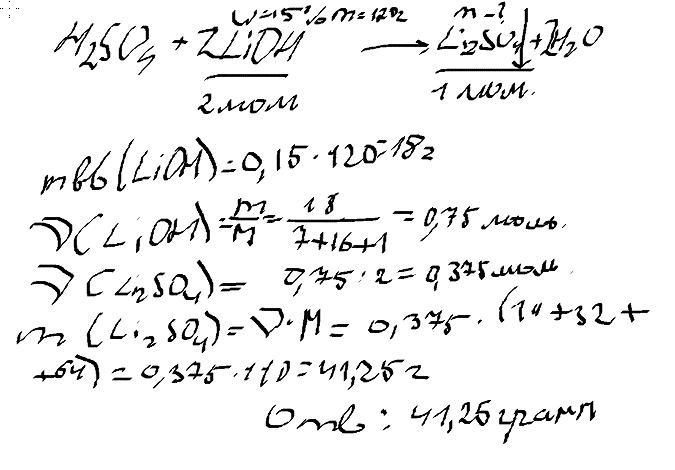 w=15% m=120г m-?
H₂SO₄ + 2LiOH → Li₂SO₄↓ + 2H₂O
2 моль 1 моль.
mвв(LiOH)=0,15·120=18г
ν(LiOH)=m/M=18/(7+16+1)=0,75 моль.
ν(Li₂SO₄)= 0,75:2=0,375моль
m(Li₂SO₄)=ν·M=0,375·(14+32+
+64)=0,375·110=41,25г
Отв: 41,25грамм